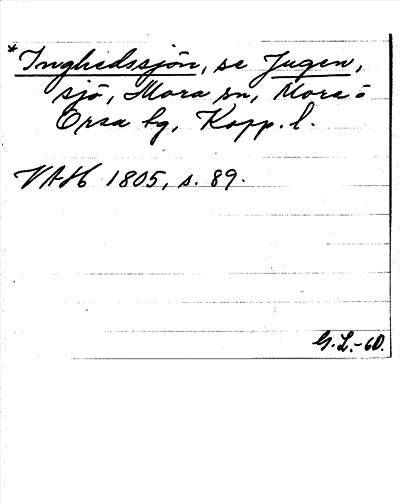 *Inghedssjön, se Jugen,
sjö, Mora sn, Mora o
Orsa hg, Kopp. l.
VAH 1805, s. 89.
G.L.-60.